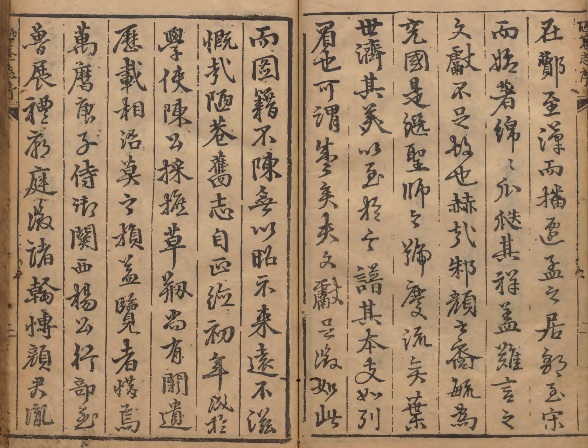 在鄒至漢而播遷孟之居鄒至宋
而始著綿〻瓜瓞其祥盖難言之
文獻不足故也赫哉邾顏之裔毓爲
兗國是繼聖師之號慶流奕葉
世濟其美以至於今譜其本支如列
眉也可謂盛矣夫文獻足徵如此
而圖籍不陳無以昭示來遠不滋
慨哉陋巷舊志自正德初年成於
學使陳公採摭草刱尚有闕遺
歷載相沿莫之損益覽者惜焉
萬曆庚子侍御關西楊公行部至
魯展禮廟庭徵諸翰博顏君胤